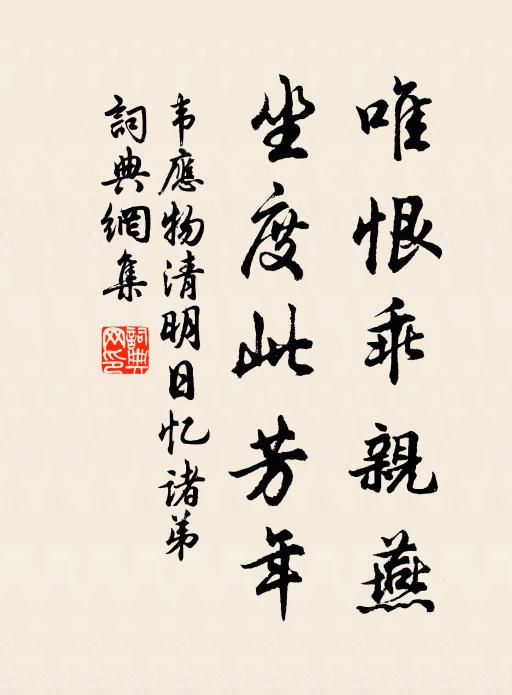 唯恨乖親燕
坐度此芳年
韦應物清明日忆諸弟
詞典網集
詞典網印